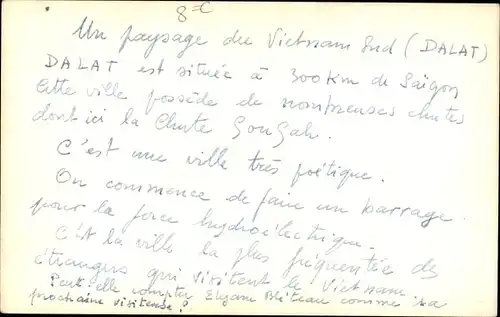 8 €
Un paysage du Vietnam Sud (DALAT)
DALAT est située à 300 km de Saïgon
Cette ville possède de nombreuses chutes
dont ici la Chute GouGah.
C'est une ville très poétique.
On commence de faire un barrage
pour la force hydroélectrique.
C'est la ville la plus fréquentée des
étrangers qui visitent le Vietnam.
Peut-elle compter comme sa
prochaine visiteuse ?